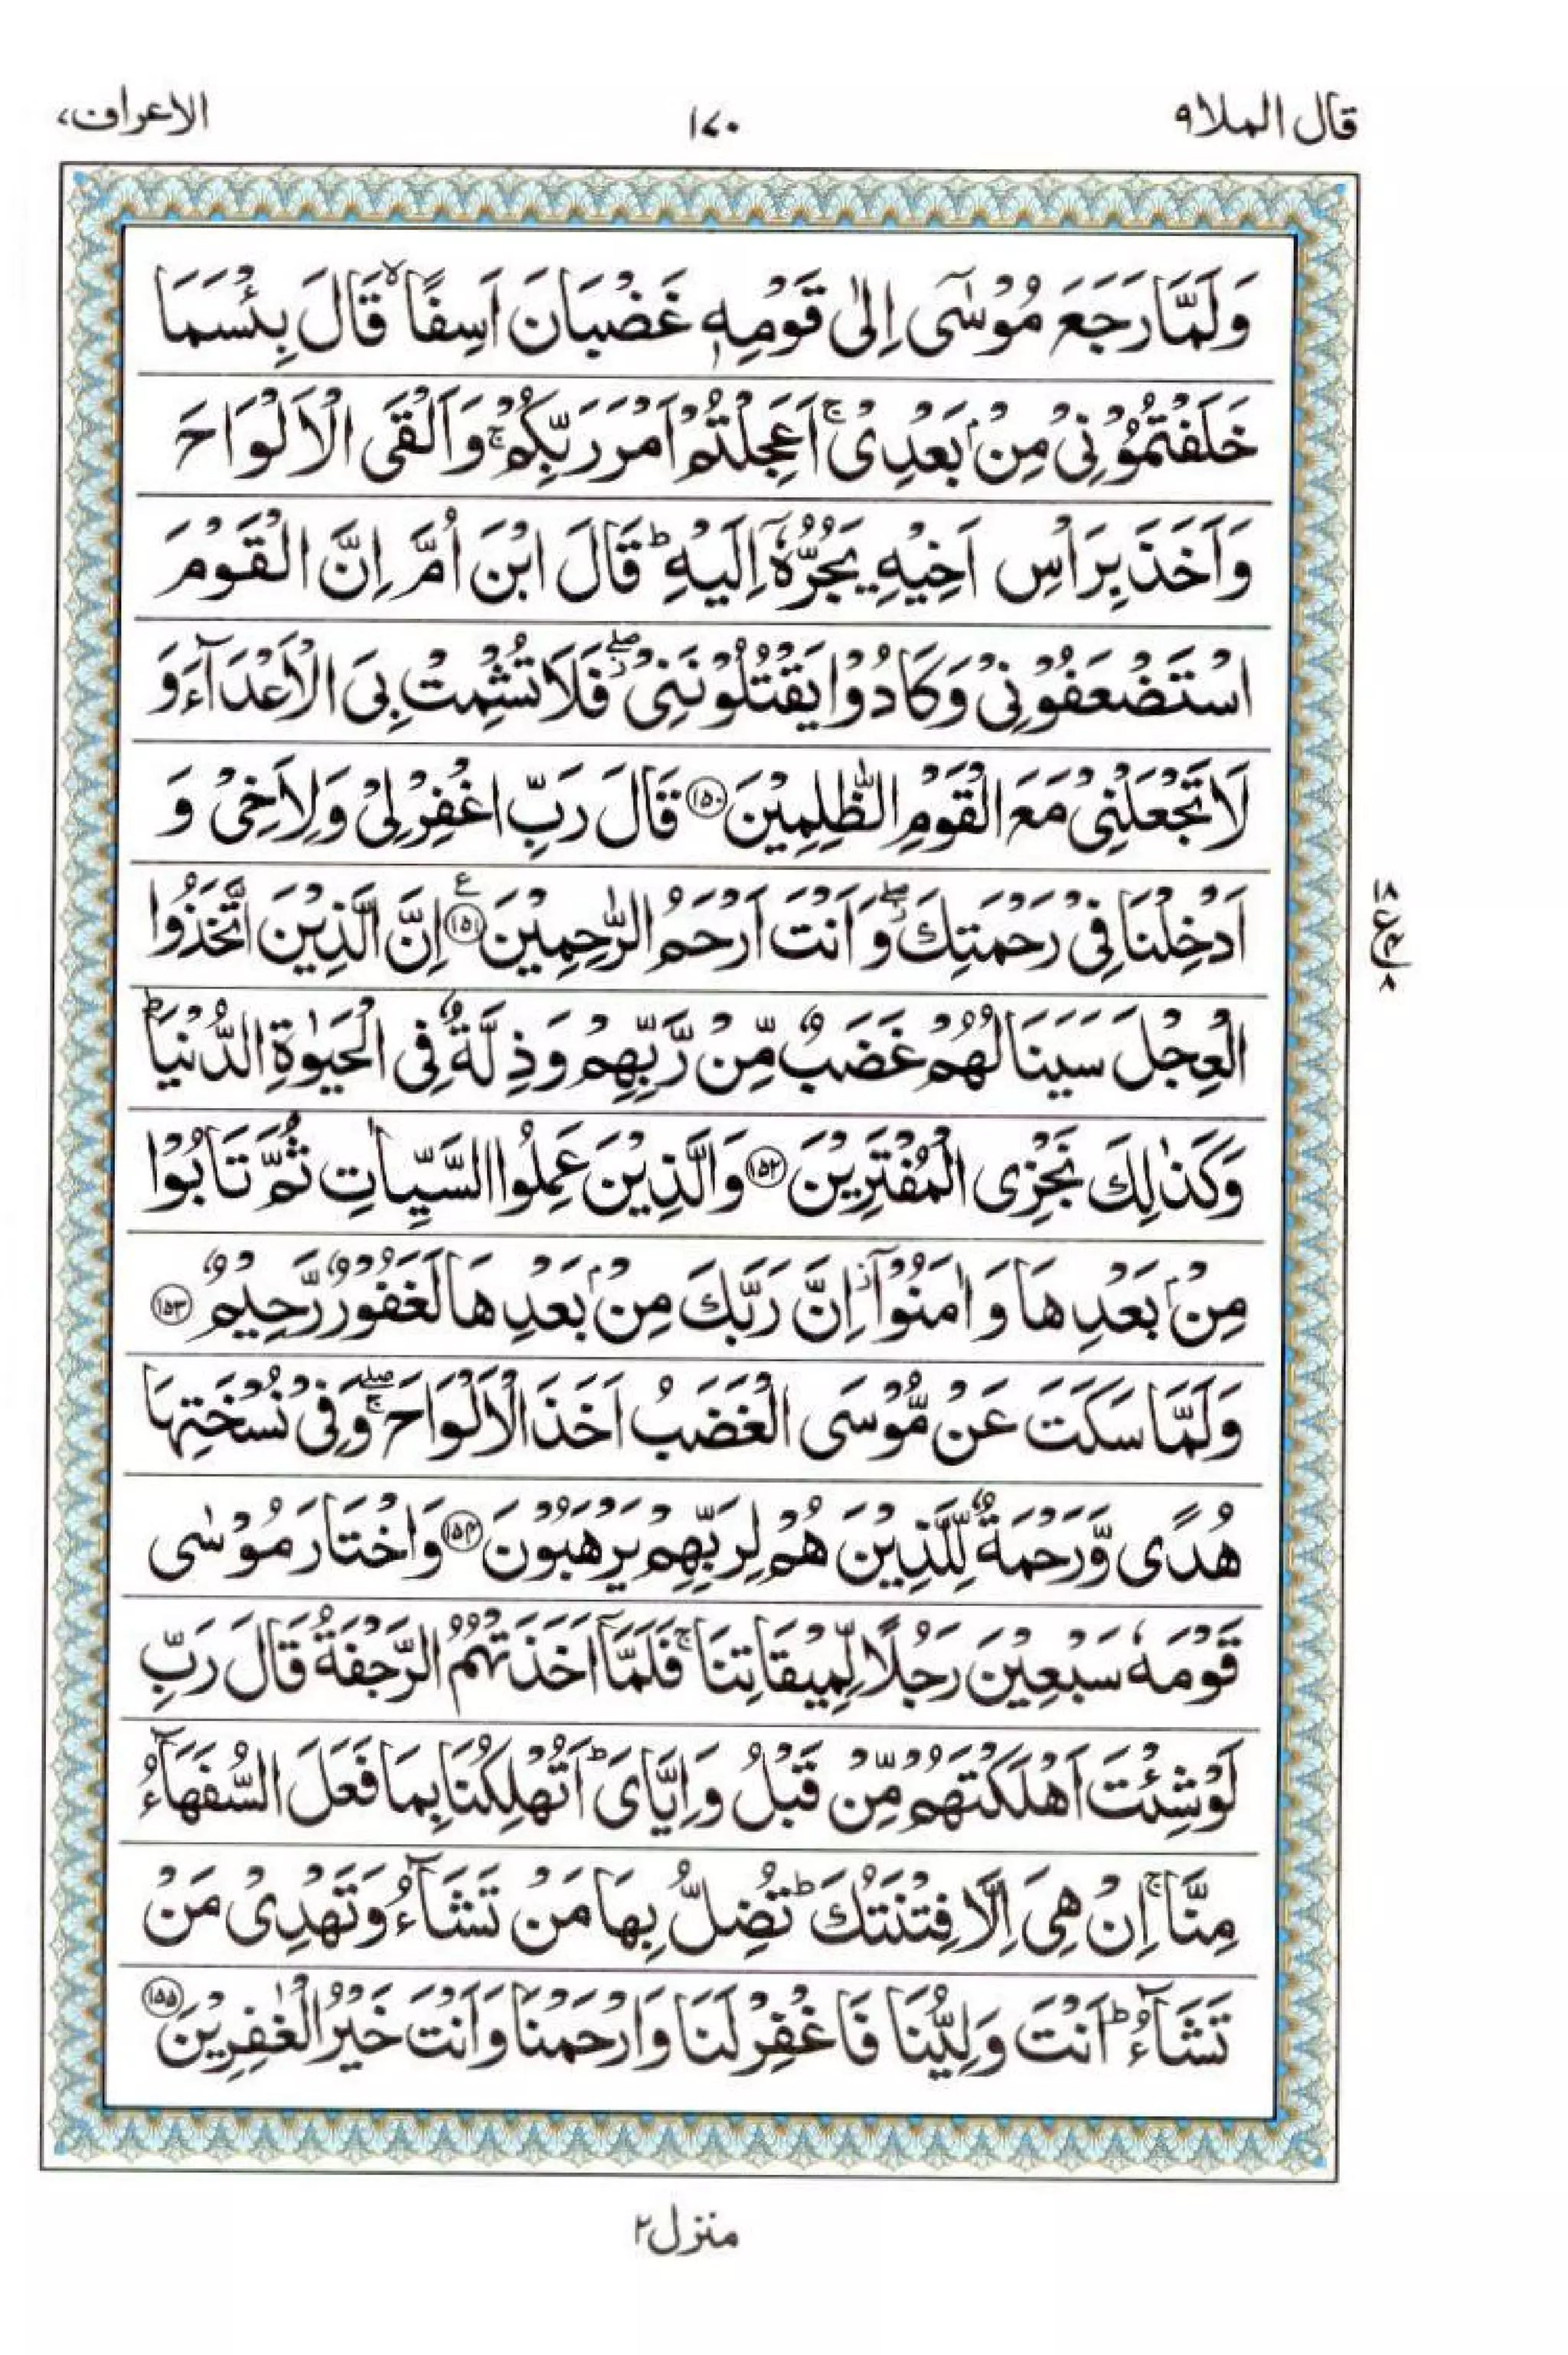 قال الملا ٩
١٧٠
الاعراف ٧
وَلَمَّا رَجَعَ مُوْسٰٓى اِلٰى قَوْمِهٖ غَضْبَانَ اَسِفًا ۙ قَالَ بِئْسَمَا
خَلَفْتُمُوْنِیْ مِنْۢ بَعْدِیْ ۚ اَعَجِلْتُمْ اَمْرَ رَبِّكُمْ ۚ وَاَلْقَى الْاَلْوَاحَ
وَاَخَذَ بِرَاْسِ اَخِیْهِ یَجُرُّهٗۤ اِلَیْهِ ؕ قَالَ ابْنَ اُمَّ اِنَّ الْقَوْمَ
اسْتَضْعَفُوْنِیْ وَكَادُوْا یَقْتُلُوْنَنِیْ ۖ فَلَا تُشْمِتْ بِیَ الْاَعْدَآءَ وَ
لَا تَجْعَلْنِیْ مَعَ الْقَوْمِ الظّٰلِمِیْنَ ۝١٥٠ قَالَ رَبِّ اغْفِرْ لِیْ وَلِاَخِیْ وَ
اَدْخِلْنَا فِیْ رَحْمَتِكَ ۖ وَاَنْتَ اَرْحَمُ الرّٰحِمِیْنَ ۝١٥١ ع اِنَّ الَّذِیْنَ اتَّخَذُوا
الْعِجْلَ سَیَنَالُهُمْ غَضَبٌ مِّنْ رَّبِّهِمْ وَذِلَّةٌ فِی الْحَیٰوةِ الدُّنْیَا ؕ
وَكَذٰلِكَ نَجْزِی الْمُفْتَرِیْنَ ۝١٥٢ وَالَّذِیْنَ عَمِلُوا السَّیِّاٰتِ ثُمَّ تَابُوْا
مِنْۢ بَعْدِهَا وَاٰمَنُوْۤا ۫ اِنَّ رَبَّكَ مِنْۢ بَعْدِهَا لَغَفُوْرٌ رَّحِیْمٌ ۝١٥٣
وَلَمَّا سَكَتَ عَنْ مُّوْسَى الْغَضَبُ اَخَذَ الْاَلْوَاحَ ۖۚ وَفِیْ نُسْخَتِهَا
هُدًی وَّرَحْمَةٌ لِّلَّذِیْنَ هُمْ لِرَبِّهِمْ یَرْهَبُوْنَ ۝١٥٤ وَاخْتَارَ مُوْسٰى
قَوْمَهٗ سَبْعِیْنَ رَجُلًا لِّمِیْقَاتِنَا ۚ فَلَمَّاۤ اَخَذَتْهُمُ الرَّجْفَةُ قَالَ رَبِّ
لَوْ شِئْتَ اَهْلَكْتَهُمْ مِّنْ قَبْلُ وَاِیَّایَ ؕ اَتُهْلِكُنَا بِمَا فَعَلَ السُّفَهَآءُ
مِنَّا ۚ اِنْ هِیَ اِلَّا فِتْنَتُكَ ؕ تُضِلُّ بِهَا مَنْ تَشَآءُ وَتَهْدِیْ مَنْ
تَشَآءُ ؕ اَنْتَ وَلِیُّنَا فَاغْفِرْ لَنَا وَارْحَمْنَا وَاَنْتَ خَیْرُ الْغٰفِرِیْنَ ۝١٥٥
١٨
ع
٤
٨
منزل ٢